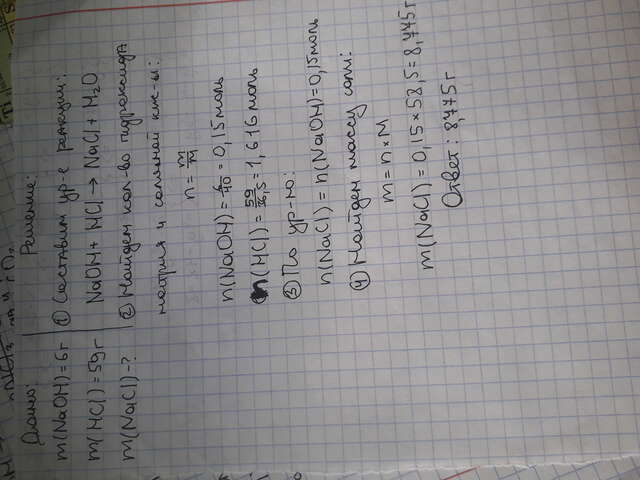 Дано:
m(NaOH)=6г
m(HCl)=59г
m(NaCl)-?
Решение:
① Составим ур-е реакции:
NaOH + HCl → NaCl + H₂O
② Найдем кол-во гидроксида
натрия и соляной кис-ы:
n = m/M
n(NaOH) = 6/40 = 0,15 моль
n(HCl) = 59/36,5 = 1,616 моль
③ По ур-ю:
n(NaCl) = n(NaOH) = 0,15 моль
④ Найдем массу соли:
m = n × M
m(NaCl) = 0,15 × 58,5 = 8,775 г
Ответ: 8,775 г
Ti